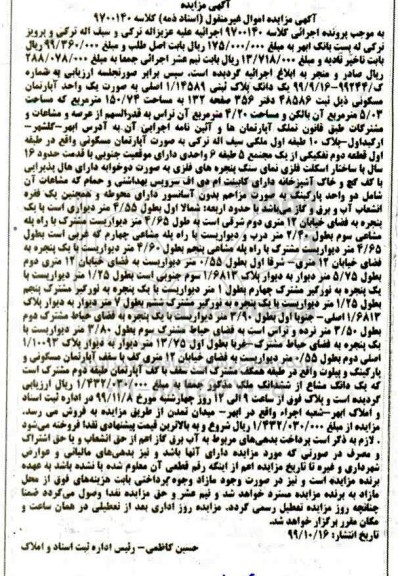 آگهی مزایده
آگهی مزایده اموال غیرمنقول (اسناد ذمه) کلاسه ۹۷۰۰۱۴۰
به موجب پرونده اجرائی کلاسه ۹۷۰۰۱۴۰ اجرائیه علیه عزیزاله ترکی و سیف اله ترکی و پرویز
ترکی له پست بانک ابهر به مبلغ ۱۷۵/۰۰۰/۰۰۰ ریال بابت اصل طلب و مبلغ ۹۹/۳۶۰/۰۰۰ ریال
بابت خسارت تأخیر تأدیه و مبلغ ۱۳/۷۱۸/۰۰۰ ریال بابت نیم عشر اجرائی جمعا به مبلغ ۲۸۸/۰۷۸/۰۰۰
ریال صادر و منجر به ابلاغ اجرائیه گردیده است. سپس برابر صورتجلسه ارزیابی به شماره
ک/۹۹۲۴۴-۹۹/۹/۱۶ یک دانگ پلاک ثبتی ۱/۱۴۵۸۹ اصلی به صورت یک واحد آپارتمان
مسکونی ذیل ثبت ۴۸۵۸۶ دفتر ۳۵۶ صفحه ۱۳۲ به مساحت ۱۵۰/۷۴ مترمربع که مساحت
۵/۰۳ مترمربع آن بالکن و مساحت ۴/۲۰ مترمربع آن تراس به قدرالسهم از عرصه و مشاعات و
مشترکات طبق قانون تملک آپارتمان ها و آئین نامه اجرایی آن به آدرس ابهر-گلشهر-
پلاک ۱۰ طبقه اول ملکی سیف اله ترکی به صورت آپارتمان مسکونی واقع در طبقه
اول قطعه دوم تفکیکی از یک مجتمع ۵ طبقه ۶ واحدی دارای موقعیت جنوبی با قدمت حدود ۱۶
سال با ساختار اسکلت فلزی نمای سنگ پنجره های فلزی به صورت دوخوابه دارای هال پذیرایی
با کف گچ و خاک آشپزخانه دارای کابینت ام دی اف سرویس بهداشتی و حمام که مشاعات آن
شامل دو واحد پارکینگ به صورت مزاحم بدون آسانسور دارای محوطه و همچنین یک فقره
انشعاب آب و برق و گاز می‌باشد با حدود اربعه: شمالا اول بطول ۴/۵۵ متر دیواری است با یک
پنجره به فضای خیابان ۱۲ متری دوم شرقی است به طول ۴/۶۵ متر دیواریست مشترک با راه پله
مشاعی سوم بطول ۲/۶۰ متر درب و دیواریست با راه پله مشاعی چهارم که غربی است بطول
۴/۶۵ متر دیواریست مشترک با راه پله مشاعی پنجم بطول ۴/۶۰ متر دیواریست با یک پنجره به
فضای خیابان ۱۲ متری- شرقا اول بطول ۰/۵۵ متر دیواریست به فضای خیابان ۱۲ متری دوم
بطول ۵/۷۵ متر دیوار به دیوار پلاک ۱/۶۸۱۳ سوم جنوبی است بطول ۱/۲۵ متر دیواریست با
یک پنجره به نورگیر مشترک چهارم بطول ۱ متر دیواریست با یک پنجره به نورگیر مشترک پنجم
بطول ۱/۲۵ متر دیواریست با یک پنجره به نورگیر مشترک ششم بطول ۷ متر دیوار به دیوار پلاک
۱/۶۸۱۳ اصلی- جنوبا اول بطول ۳/۹۰ متر دیواریست با یک پنجره به فضای حیاط مشترک دوم
بطول ۳/۵۰ متر نرده و تراس است به فضای حیاط مشترک سوم بطول ۳/۸۰ متر دیواریست با
یک پنجره به فضای حیاط مشترک- غربا بطول اول ۱۳/۷۵ متر دیوار به دیوار پلاک ۱/۱۰۰۹۳
اصلی دوم بطول ۰/۵۵ متر دیواریست به فضای خیابان ۱۲ متری کف با سقف آپارتمان مسکونی و
پارکینگ و پیلوت واقع در طبقه همکف مشترک است سقف با کف آپارتمان طبقه دوم مشترک است
که یک دانگ مشاع از ششدانگ ملک مذکور جمعا به مبلغ ۱/۴۳۲/۰۳۰/۰۰۰ ریال ارزیابی
گردیده است و پلاک فوق از ساعت ۹ الی ۱۲ روز چهارشنبه مورخ ۹۹/۱۱/۸ در اداره ثبت اسناد
و املاک ابهر-شعبه اجراء واقع در ابهر- میدان تمدن از طریق مزایده به فروش می رسد.
مزایده از مبلغ ۱/۴۳۲/۰۳۰/۰۰۰ ریال شروع و به بالاترین قیمت پیشنهادی نقدا فروخته می‌شود
. لازم به ذکر است پرداخت بدهی‌های مربوط به آب برق گاز اعم از حق انشعاب و یا حق اشتراک
و مصرف در صورتی که مورد مزایده دارای آنها باشد و نیز بدهی‌های مالیاتی و عوارض
شهرداری و غیره تا تاریخ مزایده اعم از اینکه رقم قطعی آن معلوم شده یا نشده باشد به عهده
برنده مزایده است و نیز در صورت وجود مازاد وجوه پرداختی بابت هزینه‌های فوق از محل
مازاد به برنده مزایده مسترد خواهد شد و نیم عشر و حق مزایده نقدا وصول می‌گردد ضمنا
چنانچه روز مزایده تعطیل رسمی گردد. مزایده روز اداری بعد از تعطیلی در همان ساعت و
مکان مقرر برگزار خواهد شد.
تاریخ انتشار: ۹۹/۱۰/۱۶
حسین کاظمی- رئیس اداره ثبت اسناد و املاک